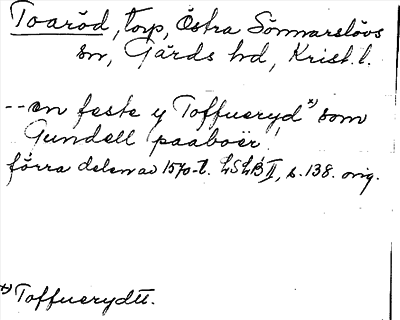 Toaröd, torp, Östra Sönnarslövs
sn, Gärds hd, Krist. l.
-- en feste y Toffueryd*) som
Gundell paaboër.
förra delen av 1570-t. LSLB II, s. 138. orig.
*) Toffuerydtt.